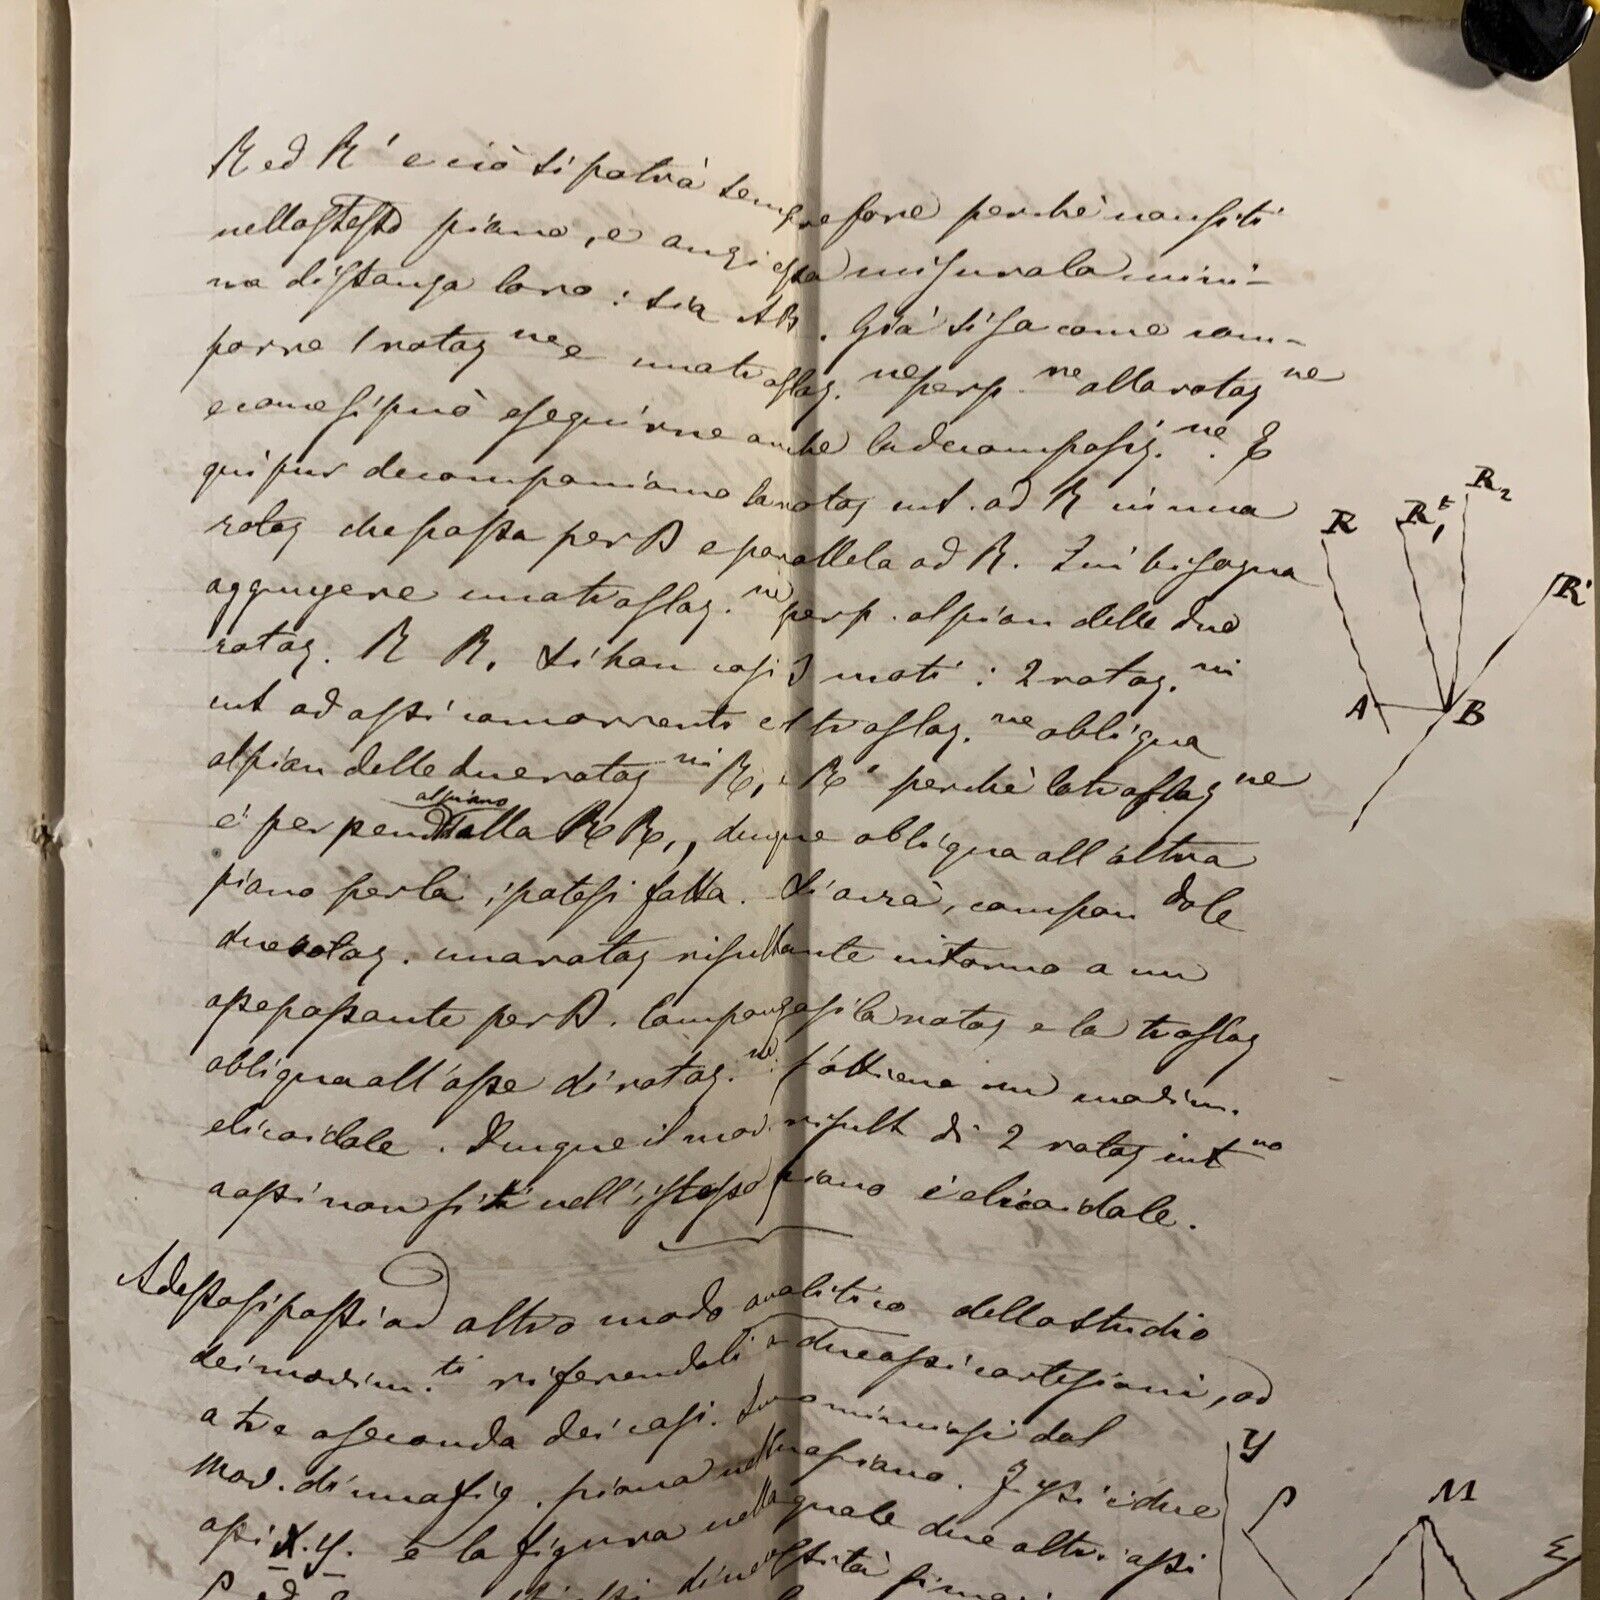 R ed R' e ciò si potrà sempre fare perchè non siti
nello stesso piano, e anzi essa misura la mini-
ma distanza loro: sia AB. Già si sa come com-
porre 1 rotaz ne e una traslaz. ne perp. re alla rotaz ne
e come si può eseguirne anche la decomposiz. ne. E
qui pur decomponiamo la rotaz int. ad R in una
rotaz che passa per B e parallela ad R. Qui bisogna
aggiungere una traslaz. ne perp. al pian delle due
rotaz. R R, Si han così 3 moti: 2 rotaz. ni
int ad assi concorrenti e 1 traslaz. ne obliqua
al pian delle due rotaz ni R, e R' perchè la traslaz ne
al piano
è perpend alla R R,, dunque obliqua all'altra
piano per la ipotesi fatta. Si avrà, componendo le
due rotaz. una rotaz risultante intorno a un
asse passante per B. Compongasi la rotaz e la traslaz
obliqua all'asse di rotaz. ne: s'ottiene un movim.
elicoidale. Dunque il mov. risult di 2 rotaz int no
a assi non siti nell'istesso piano è elicoidale.
Adesso si passi ad altro modo analitico dello studio
dei movim. ti riferendoli a due assi cartesiani, od
a tre a seconda dei casi. Incominciasi dal
mov. di una fig. piana nel suo piano. I ssi i due
assi X.Y. e la figura nella quale due altri assi
R
R'₁
R₂
R'
A
B
Y
P
M
Σ